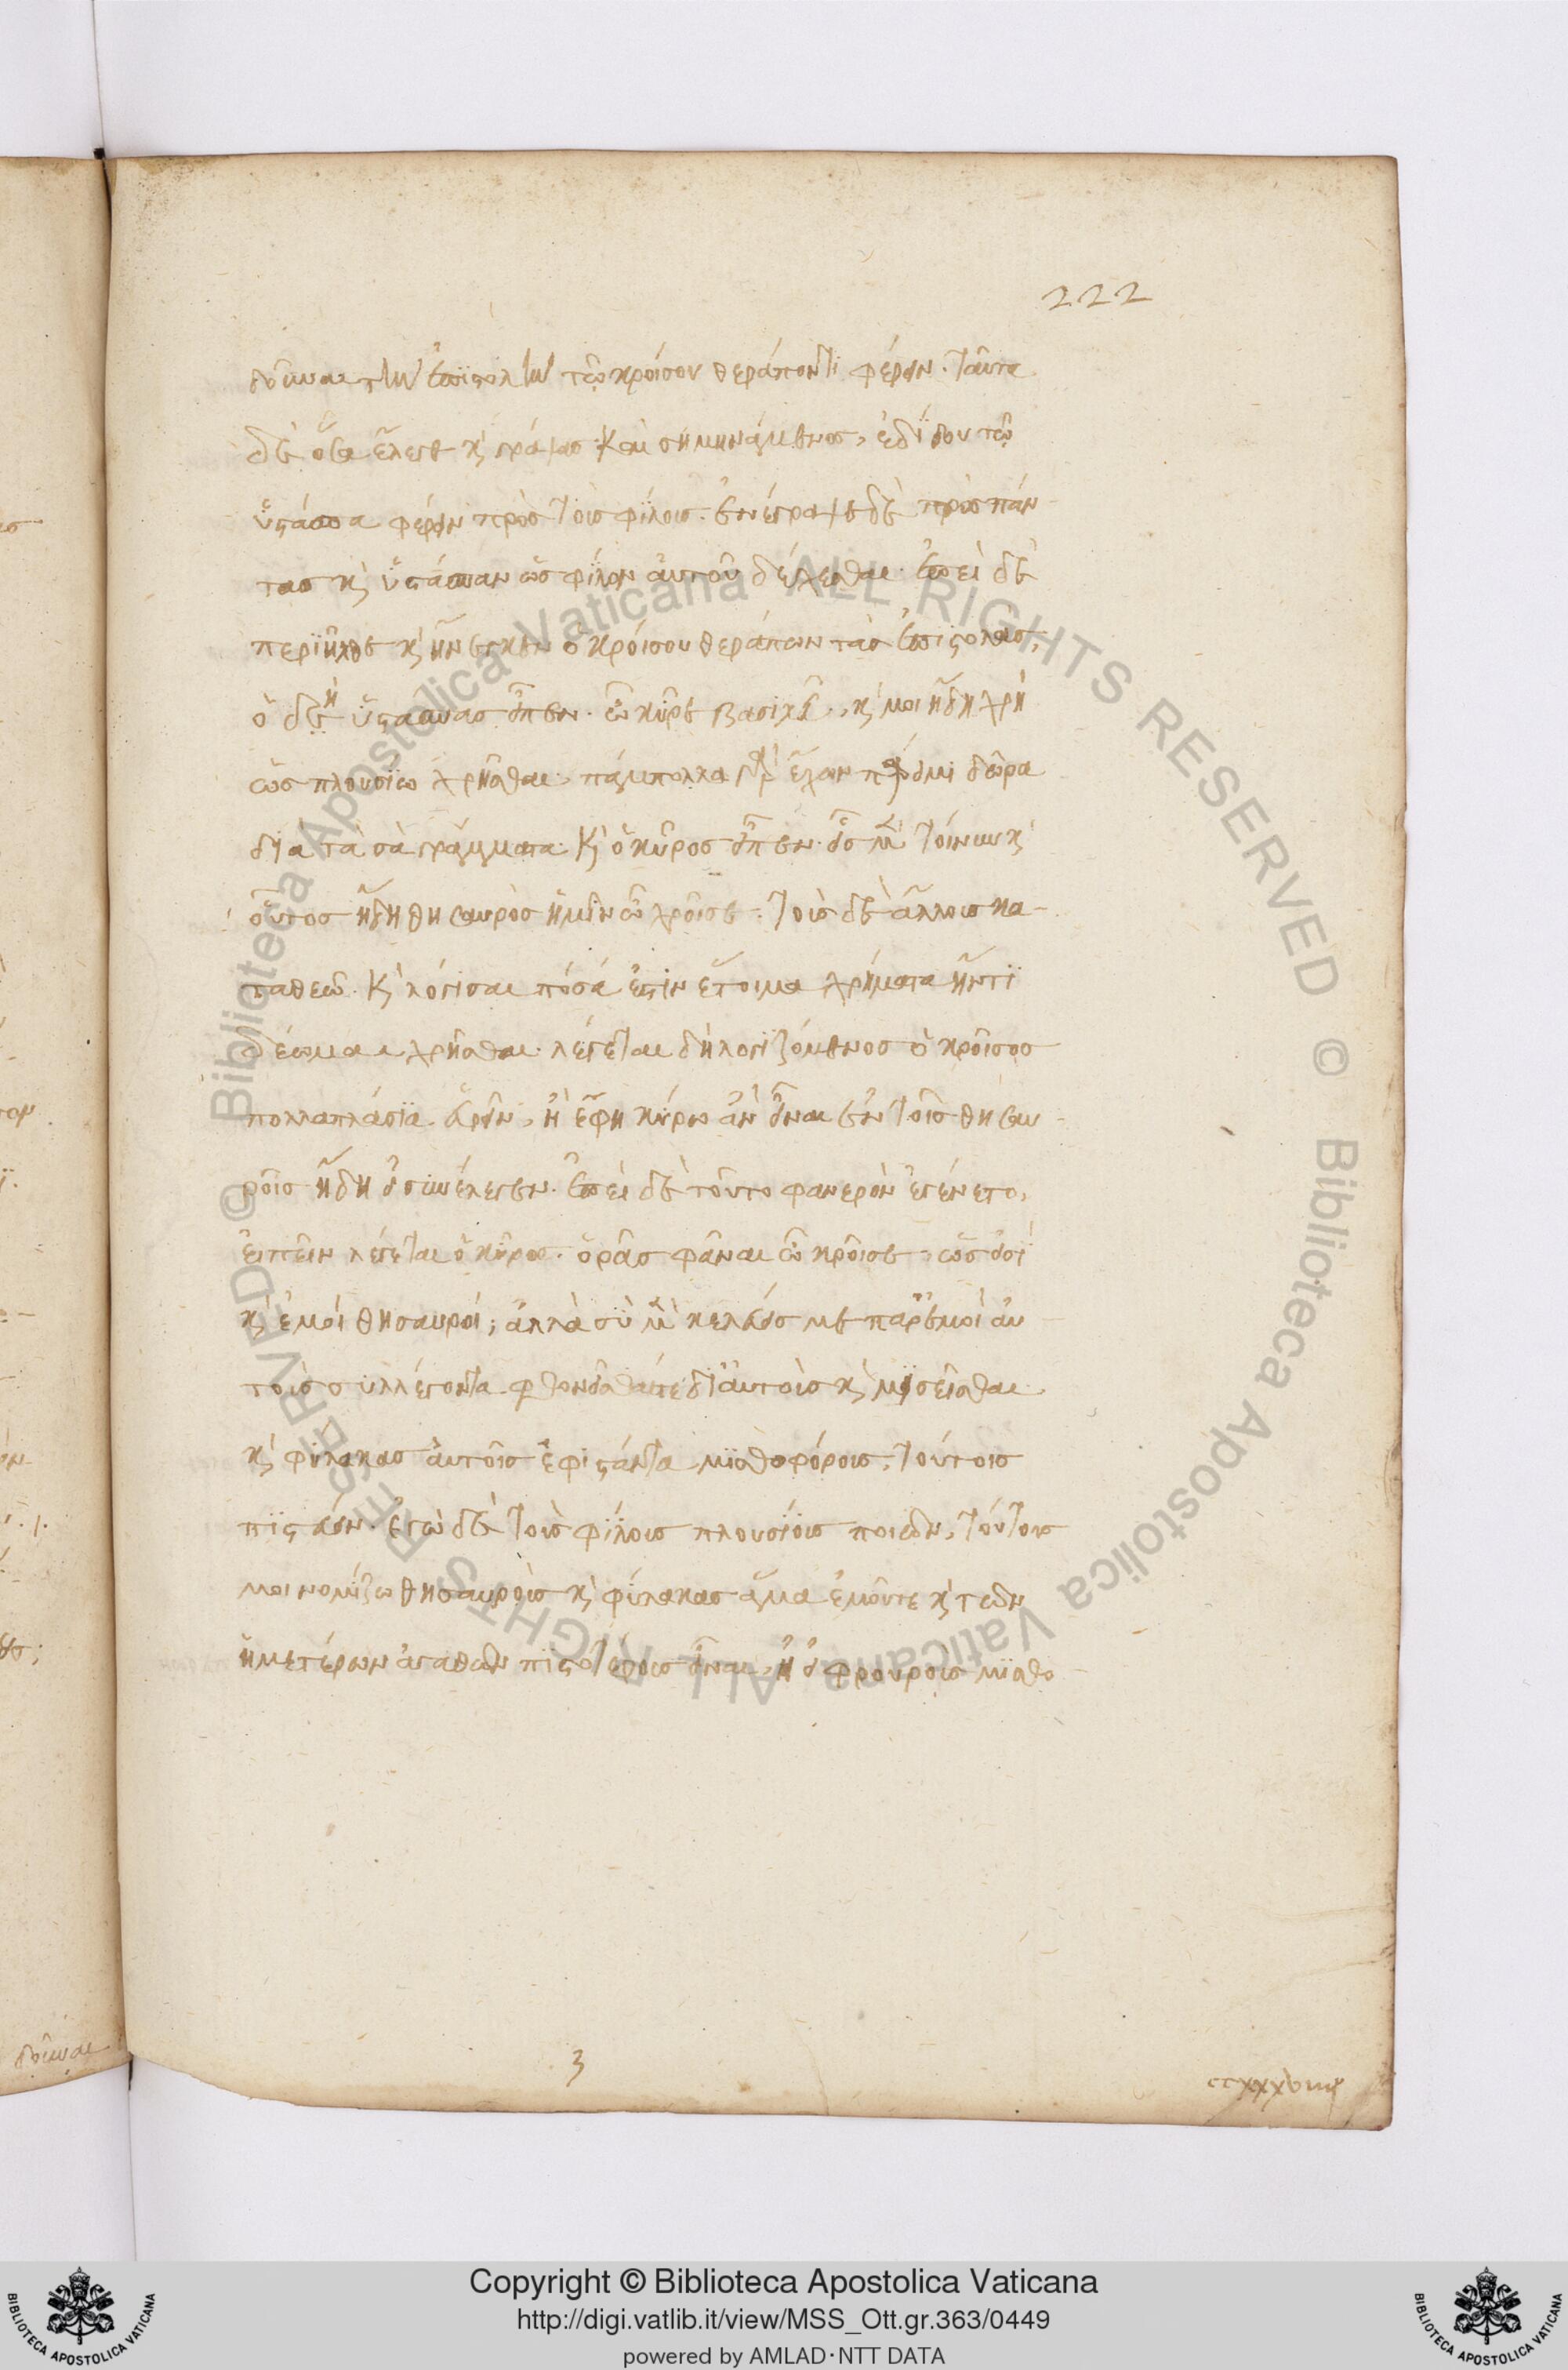 222
δοῦναι τὴν ἐπιστολὴν τῷ κροίσου θεράποντι φέρειν. ταῦτα
δὲ ὅσα ἔλεγε κ̀ γράψας καὶ σημηνάμενος, ἐδίδου τῷ
ὑστάσπα φέρειν πρὸς τοὺς φίλους. ἐνέγραψε δὲ πρὸς πάν-
τας κ̀ ὑστάσπαν ὡς φίλον αὐτοῦ δέχεσθαι. ἐπεὶ δὲ
περιῆλθε κ̀ ἤνεγκεν ὁ κροίσου θεράπων τὰς ἐπιστολὰς,
ὁ δὲ ὑστάσπας εἶπεν. ὦ κῦρε βασιλεῦ, κ̀ μοι ἤδη χρὴ
ὡς πλουσίω χρῆσθαι. πάμπολλα γὰρ ἔχων πάρειμι δῶρα
διὰ τὰ σὰ γράμματα. κ̀ ὁ κῦρος εἶπεν. εἷς μὲν τοίνυν κ̀
οὗτος ἤδη θησαυρὸς ἡμῖν ὦ χροῖσε. τοὺς δὲ ἄλλους κα-
ταθεῶ. κ̀ λόγισαι πόσά ἐστιν ἕτοιμα χρήματα ἤν τι
δέωμαι χρῆσθαι. λέγεται δὴ λογιζόμενος ὁ κροῖσος
πολλαπλάσια εὑρεῖν, ἢ ἔφη κύρω ἂν εἶναι ἐν τοῖς θησαυ-
ροῖς ἤδη εἰ συνέλεγεν. ἐπεὶ δὲ τοῦτο φανερὸν ἐγένετο,
εἰπεῖν λέγεται ὁ κῦρος. ὁρᾶς φάναι ὦ κροῖσε, ὡς εἰσὶ
κ̀ ἐμοὶ θησαυροί; ἀλλὰ σὺ μὲν κελεύεις με παρ' ἐμοὶ αὐ-
τοὺς συλλέγοντα φθονεῖσθαί τε δι' αὐτοὺς κ̀ μισεῖσθαι
κ̀ φύλακας αὐτοῖς ἐφιστάντα μισθοφόρους, τούτοις
πιστεύειν. ἐγὼ δὲ τοὺς φίλους πλουσίους ποιῶν, τούτους
μοι νομίζω θησαυροὺς κ̀ φύλακας ἅμα ἐμοῦ τε κ̀ τῶν
ἡμετέρων ἀγαθῶν πιστοτέρους εἶναι, ἢ εἰ φρουροὺς μισθο-
3
ccxxxviiij
δοῦναι
Copyright © Biblioteca Apostolica Vaticana
http://digi.vatlib.it/view/MSS_Ott.gr.363/0449
powered by AMLAD·NTT DATA